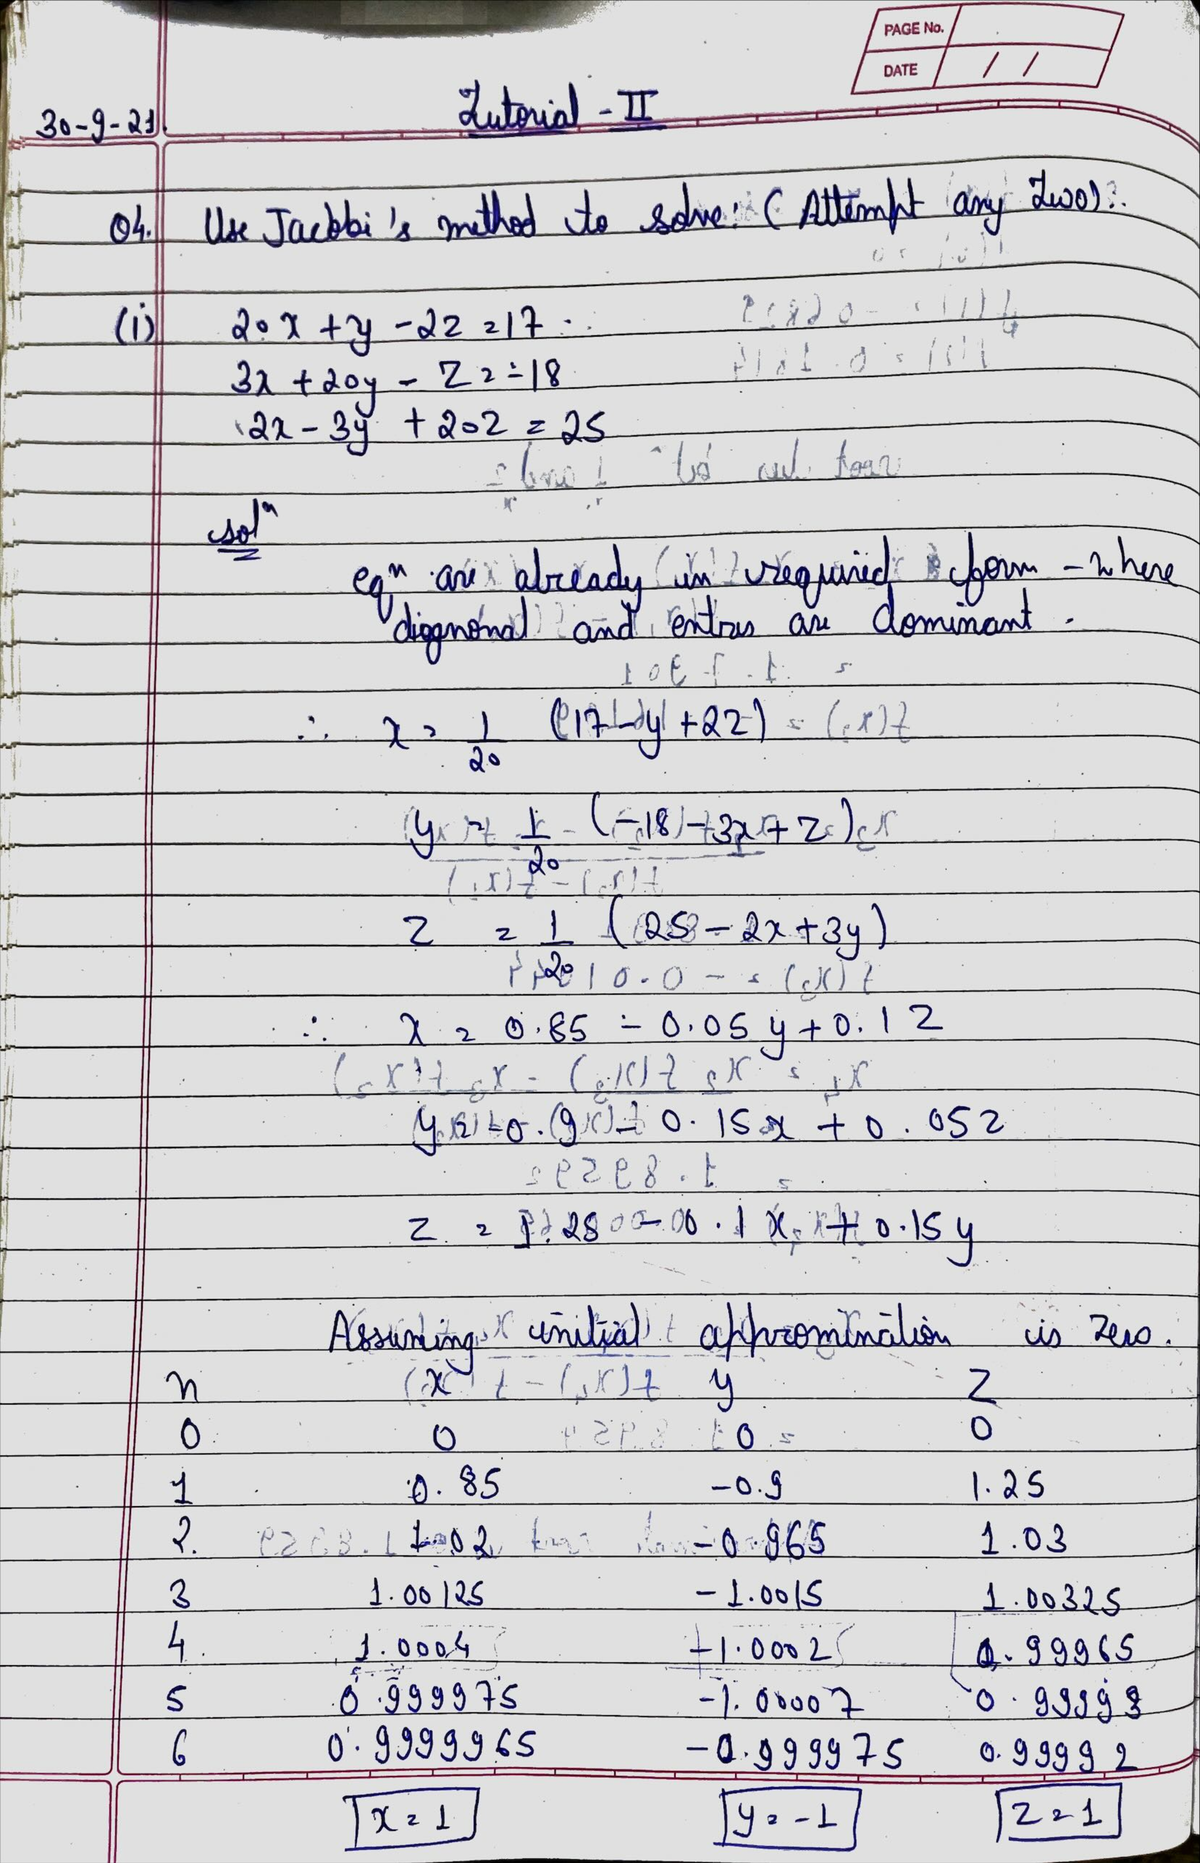 PAGE No.
DATE / /
30-9-21
Tutorial - II
Q4. Use Jacobi's method to solve: (Attempt any Two):.
(i) 20x + y - 2z = 17
3x + 20y - z = -18
2x - 3y + 20z = 25
solⁿ
eqⁿ are already in required form - where
diognonal and entries are dominant.
∴ x = 1/20 (17 - y + 2z)
y = 1/20 (-18 - 3x + z)
z = 1/20 (25 - 2x + 3y)
∴ x = 0.85 - 0.05y + 0.1z
y = -0.9 - 0.15x + 0.05z
z = 1.25 - 0.1x + 0.15y
Assuming initial appromination is zero.
n x y z
0 0 0 0
1 0.85 -0.9 1.25
2. 1.02 -0.965 1.03
3 1.00125 -1.0015 1.00325
4 1.0004 -1.0002 0.99965
5 0.999975 -1.00007 0.99993
6 0.9999965 -0.999975 0.99992
x = 1 y = -1 z = 1